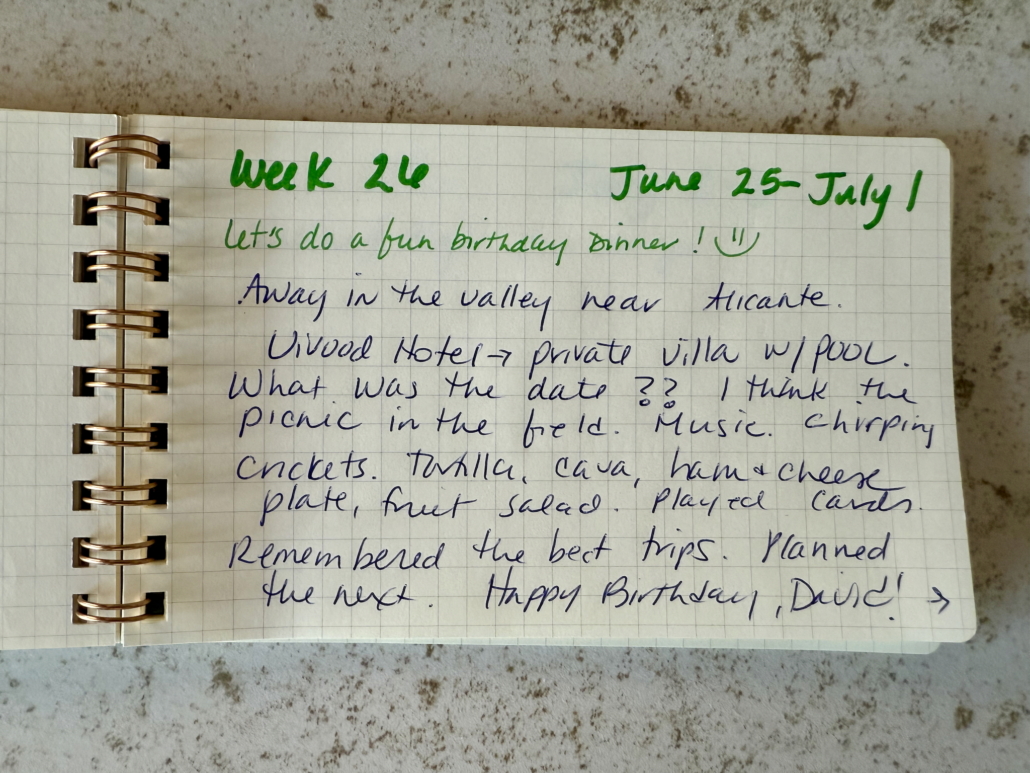 Week 26 June 25-July 1
Let's do a fun birthday Dinner! :)
Away in the valley near Alicante.
Vivood Hotel → private villa w/POOL.
What was the date ?? I think the
picnic in the field. Music. Chirping
crickets. Tortilla, cava, ham & cheese
plate, fruit salad. Played cards.
Remembered the best trips. Planned
the next. Happy Birthday, David! →